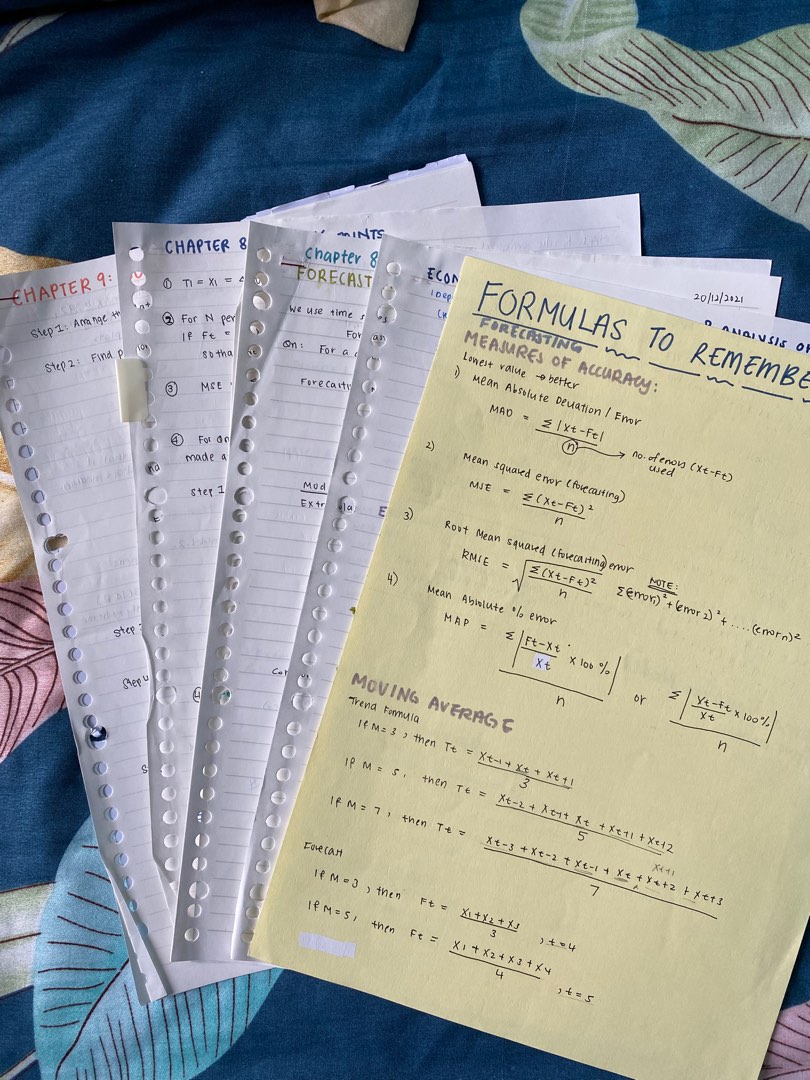 CHAPTER 9:
Step 1: Arrange th
Step 2: Find p
Step
Step
CHAPTER 8
① T1 = X1 =
② For N per
If Ft =
So tha
③ MSE
④ For
made a
Step 1
MINTS
Chapter 8
FORECAST
We use time s
For
On: For a
Forecasti
Mod
Extr
ECON
20/12/2021
ANALYSIS OF
FORMULAS TO REMEMBE
FORECASTING
MEASURES OF ACCURACY:
Lowest value → better
1) Mean Absolute Deviation / Error
MAD = Σ|Xt-Ft| / n → no. of errors (Xt-Ft) used
2) Mean squared error (forecasting)
MSE = Σ(Xt-Ft)² / n
3) Root Mean squared (forecasting) error
RMSE = √Σ(Xt-Ft)² / n
NOTE:
Σ(error1)² + (error2)² + .... (error n)²
4) Mean Absolute % error
MAP = Σ|Ft-Xt / Xt × 100%| / n or Σ|Yt-Ft / Xt × 100%| / n
MOVING AVERAGE
Trend Formula
If M=3, then Tt = Xt-1 + Xt + Xt+1 / 3
If M = 5, then Tt = Xt-2 + Xt-1 + Xt + Xt+1 + Xt+2 / 5
Xt+1
If M = 7, then Tt = Xt-3 + Xt-2 + Xt-1 + Xt + Xt+2 + Xt+3 / 7
Forecast
If M=3, then Ft = X1+X2+X3 / 3, t=4
If M=5, then Ft = X1 + X2 + X3 + X4 / 4, t=5